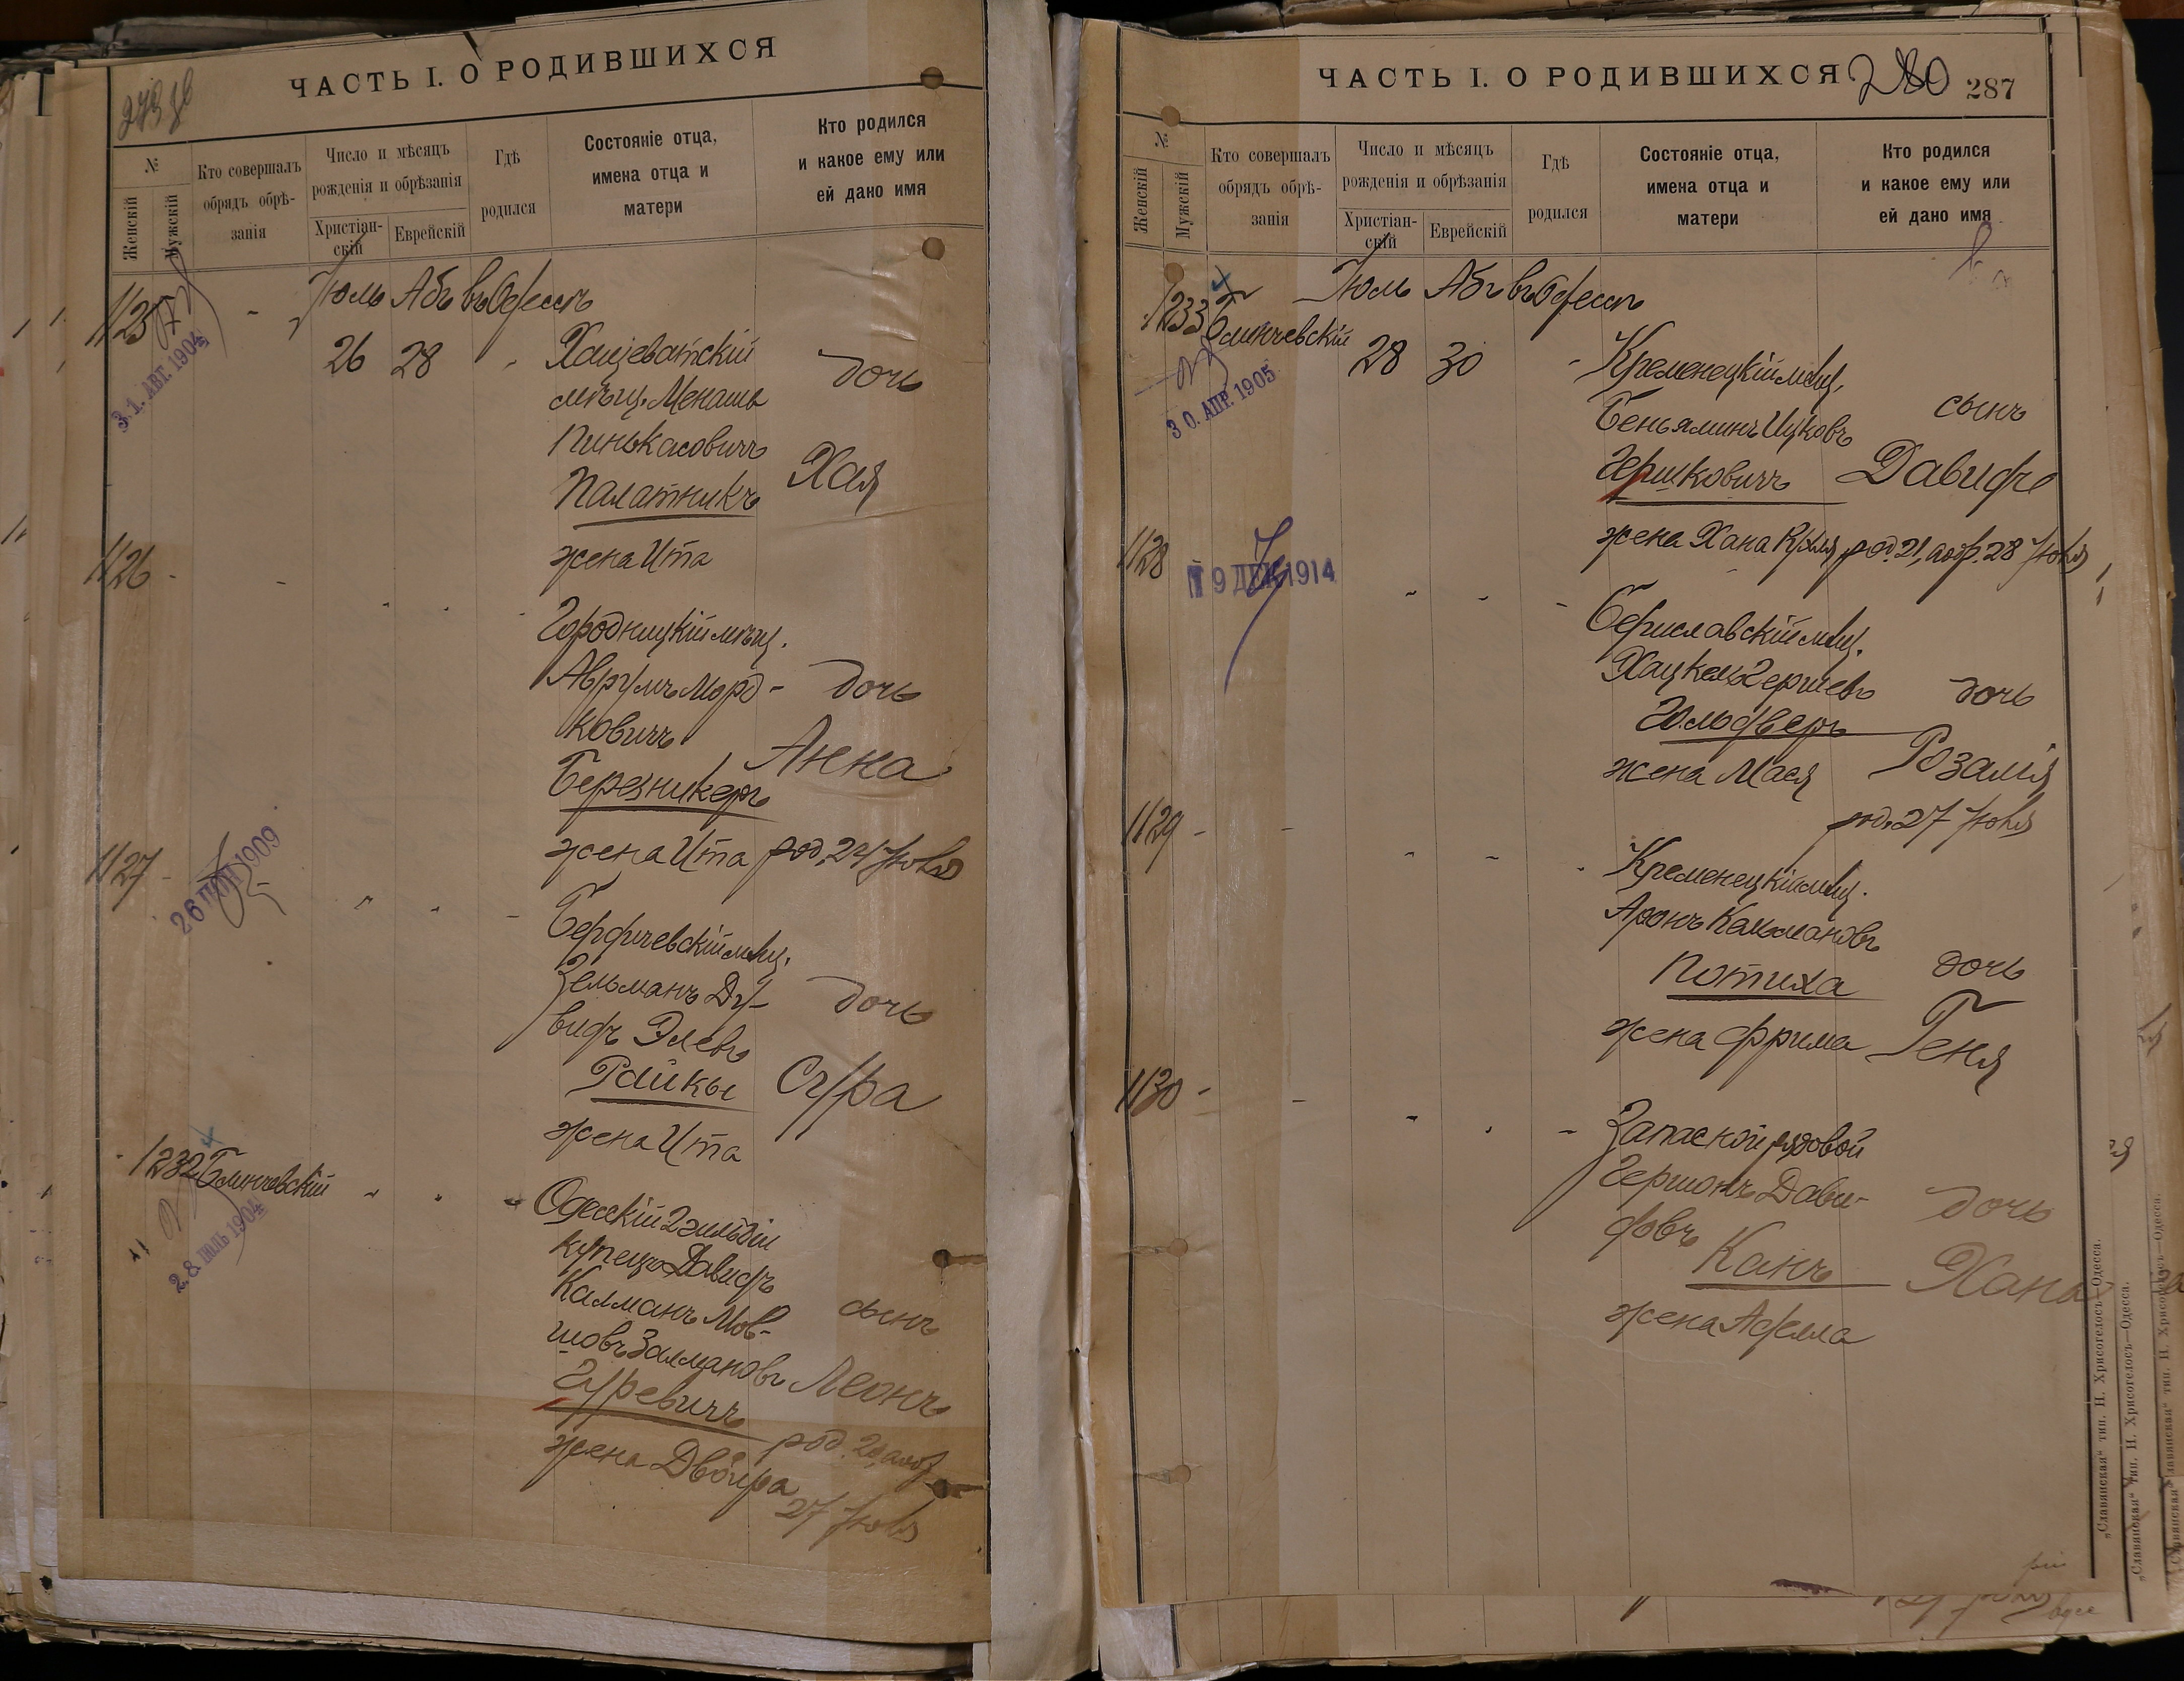 ЧАСТЬ I. О РОДИВШИХСЯ
№
Женскій
Мужскій
Кто совершалъ
обрядъ обрѣ-
занія
Число и мѣсяцъ
рожденія и обрѣзанія
Христіан-
скій
Еврейскій
Гдѣ
родился
Состояніе отца,
имена отца и
матери
Кто родился
и какое ему или
ей дано имя
1125
Іюль Абъ въ Одессѣ
31. АВГ. 1904
26 28
Хащеватскій
мѣщ. Менашъ
Пинькасовичъ
Палатникъ
жена Ита
дочь
Хая
1126
Городницкій мѣщ.
Аврумъ Морд-
ковичъ
Березникеръ
жена Ита
дочь
Анна
род. 24 Іюля
1127
26 1909
Бердичевскій мѣщ.
Зельманъ Ду-
видъ Элевъ
Райкы
жена Ита
дочь
Сура
1232 Блинчевскій
28 ІЮЛЬ 1904
Одесскій 2 гильдіи
купецъ Давидъ
Калманъ Мов-
шовъ Залмановъ
Гуревичъ
жена Двойра
сынъ
Леонъ
род. 20, а обр.
27 Іюля
ЧАСТЬ I. О РОДИВШИХСЯ
280 287
№
Женскій
Мужскій
Кто совершалъ
обрядъ обрѣ-
занія
Число и мѣсяцъ
рожденія и обрѣзанія
Христіан-
скій
Еврейскій
Гдѣ
родился
Состояніе отца,
имена отца и
матери
Кто родился
и какое ему или
ей дано имя
1233
Іюль Абъ въ Одессѣ
Блинчевскій
30. АПР. 1905
28 30
Кременецкій мѣщ.
Беньяминъ Ицковъ
Гершковичъ
жена Хана Рухля
сынъ
Давидъ
род. 21, а обр. 28 Іюля
1128
19 ДЕК 1914
Бериславскій мѣщ.
Хацкель Гершевъ
Гольдверъ
жена Мася
дочь
Розалія
род. 27 Іюля
1129
Кременецкій мѣщ.
Аронъ Кальмановъ
Потиха
жена Фрима
дочь
Геня
1130
Запасной рядовой
Гершонъ Дави-
довъ
Канъ
жена Аделла
дочь
Хана
„Славянская“ тип. Н. Хрисогелосъ—Одесса.
„Славянская“ тип. Н. Хрисогелосъ—Одесса.